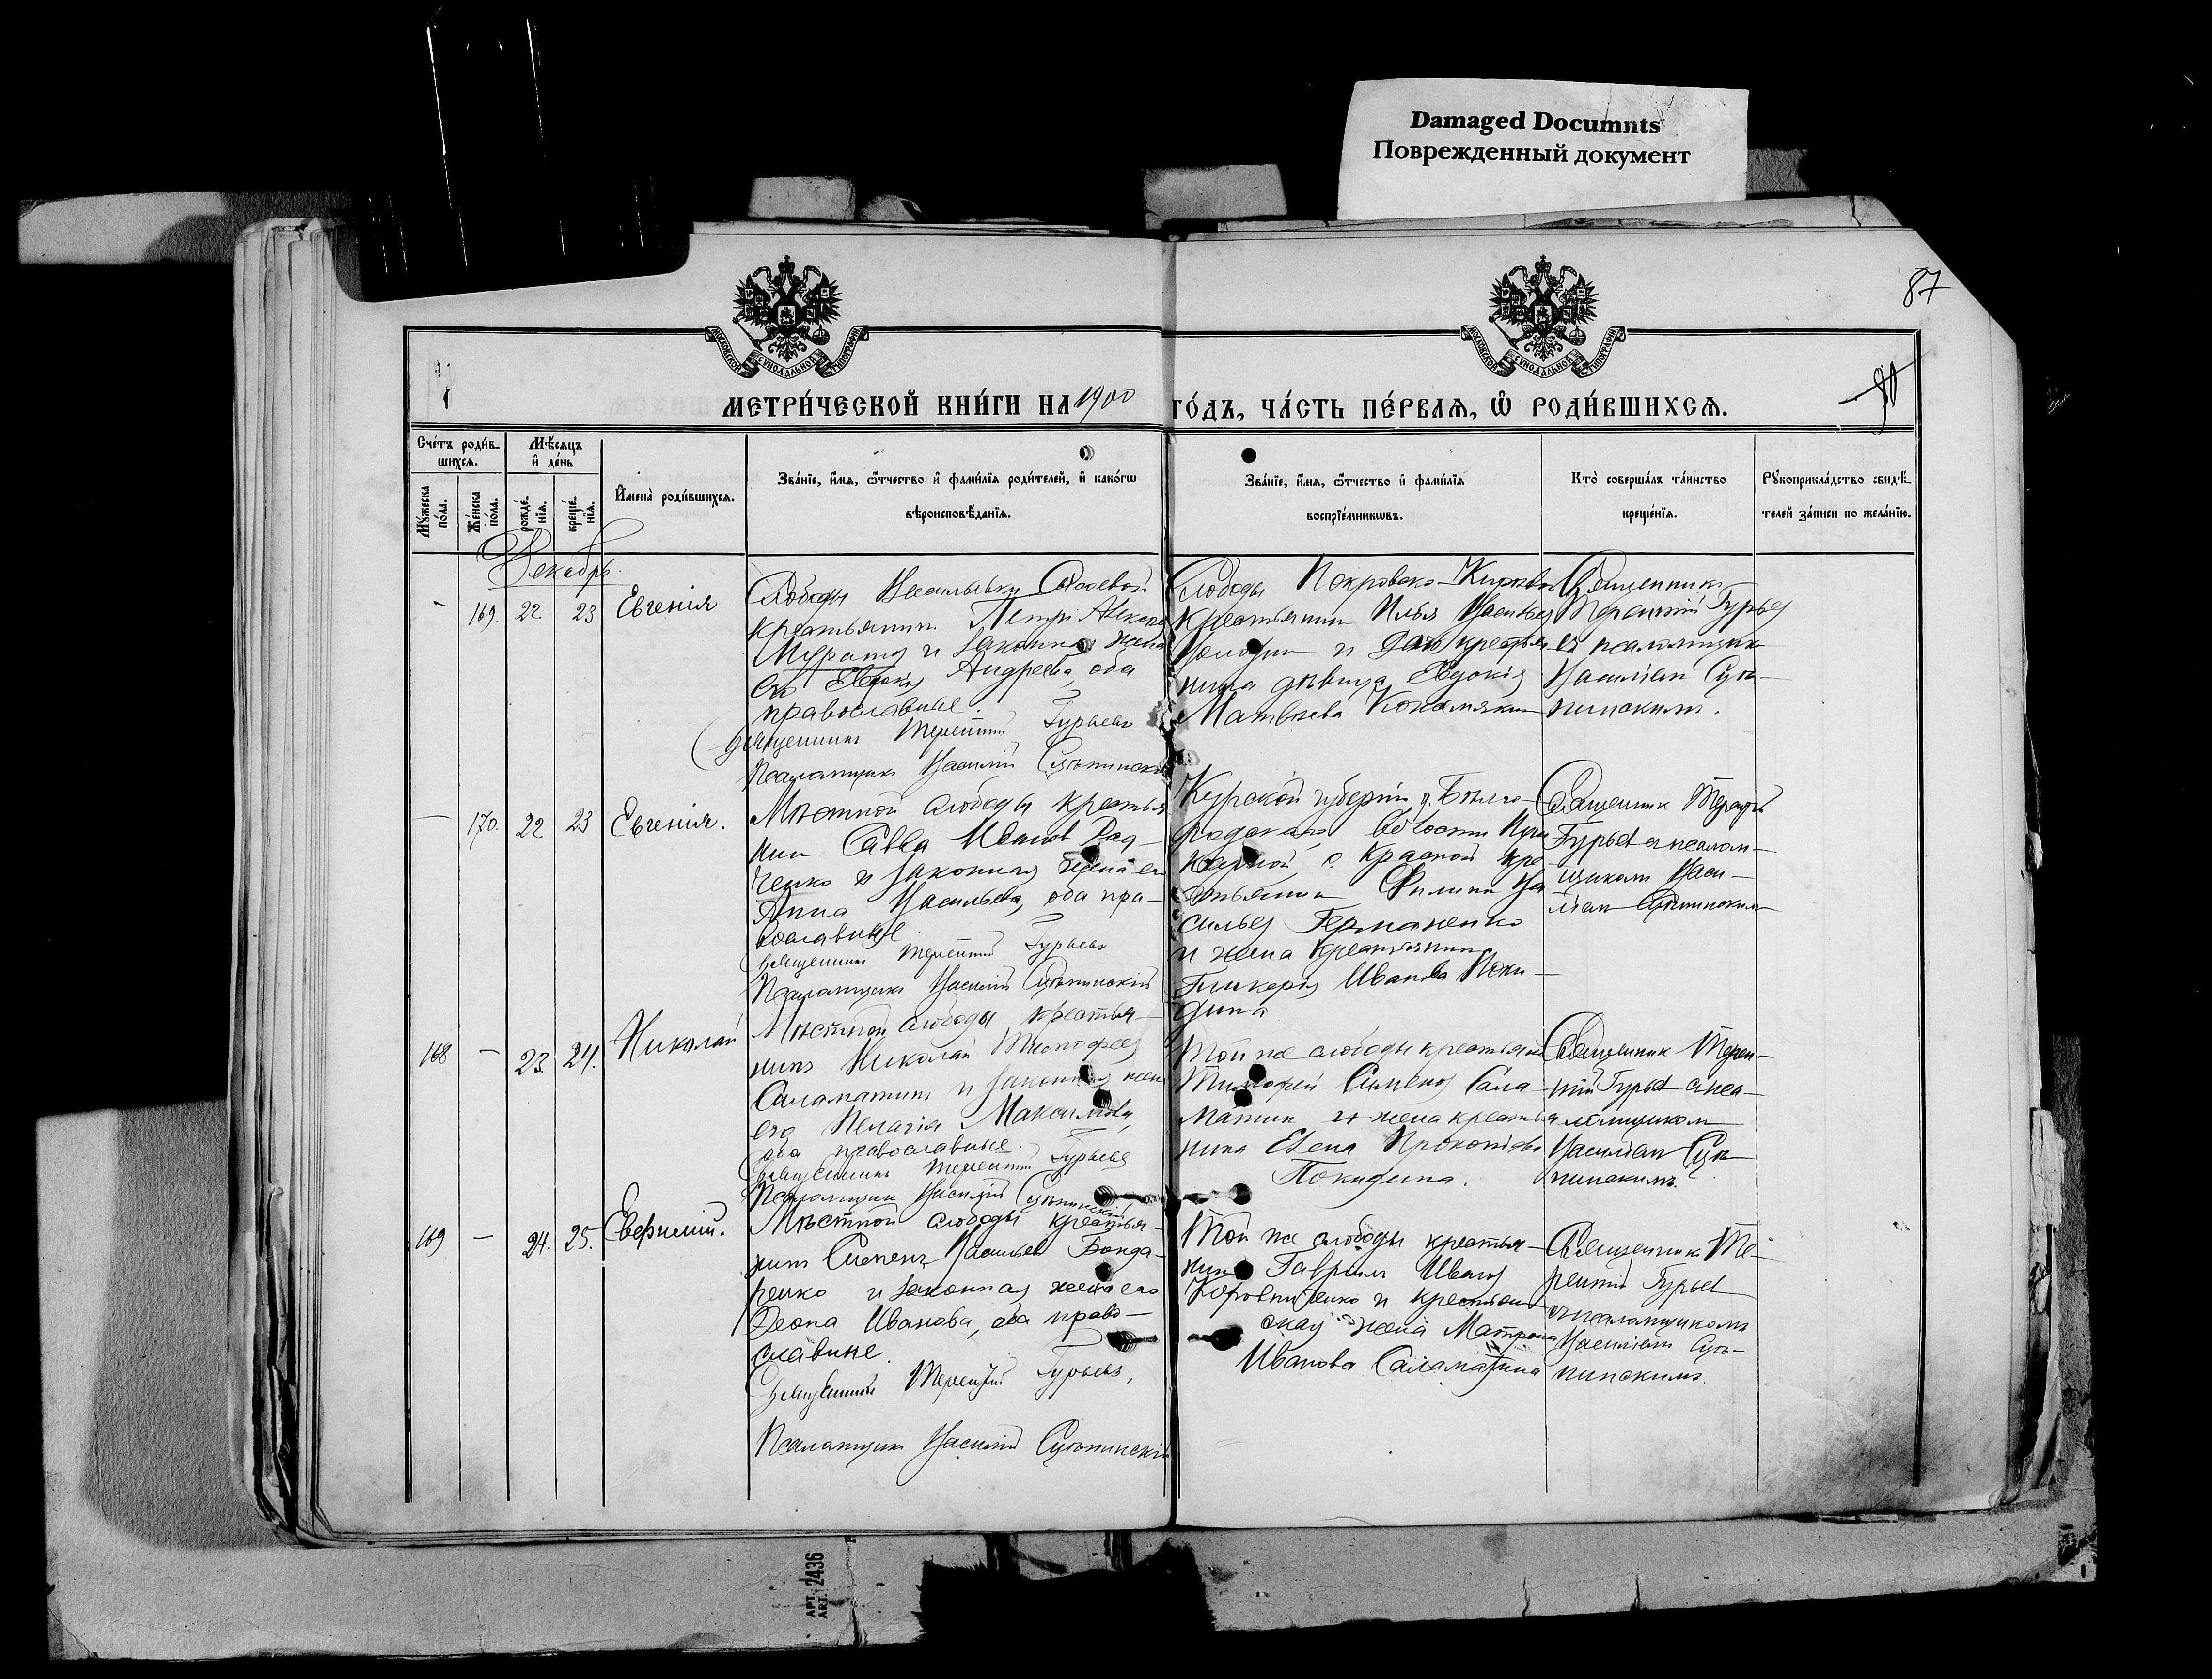 Damaged Documnts
Поврежденный документ
87
МОСКОВСКОЙ СѴНОДАЛЬНОЙ ТИПОГРАФІИ
МОСКОВСКОЙ СѴНОДАЛЬНОЙ ТИПОГРАФІИ
МЕТРИ́ЧЕСКОЙ КНИ́ГИ НА 1900 ГО́ДЪ, ЧА́СТЬ ПЕ́РВАЯ, Ѡ҆ РОДИ́ВШИХСЯ.
Сче́тъ роди́в-
шихся.
Мѣ́сяцъ
и҆ де́нь
Мꙋ́жеска по́ла.
Же́нска по́ла.
рожде́-нїя.
креще́-нїя.
И҆мена̀ роди́вшихся.
Зва́нїе, и҆́мя, ѻ҆́тчество и҆ фами́лїя роди́телей, и҆ како́гѡ
вѣроисповѣ́данїя.
Зва́нїе, и҆́мя, ѻ҆́тчество и҆ фами́лїя
воспрїе́мникѡвъ.
Кто̀ соверша́лъ та́инство
креще́нїя.
Рꙋкоприкла́дство свидѣ́-
телей за́писи по жела́нїю.
Декабрь.
— 169. 22 23 Евгенія
Слободы
крестьянинъ Петръ
и законная жена
его Евдокія Андреева, оба
православные.
Священникъ Терентій Гурьевъ
Псаломщикъ Василій Сцѣпинскій
Слободы Покровско-
крестьянинъ Илья Васильев
и
нина дѣвица Евдокія
Матвѣева
Священникъ
Терентій Гурьев
съ псаломщикомъ
Василіемъ Сцѣ-
пинскимъ.
— 170. 22 23 Евгенія.
Мѣстной слободы крестья
нин Савва Иванов Рад-
ченко и законная жена ег
Анна Васильева, оба пра-
вославные
Священникъ Терентій Гурьевъ
Псаломщикъ Василій Сцѣпинскій
Курской губерніи, у. Бѣлго-
родскаго, Волости
с. Красной кре-
стьянин Филипп Ва
сильев Германенко
и жена крестьянина
Гликерія Иванова Поки-
дина
Священник
Гурьев с псалом-
щиком Васи-
ліем Сцѣпинским
168 — 23. 24. Николай
Мѣстной слободы крестья-
нинъ Николай Тимофеев
Саламатинъ и законная жен
его Пелагія Максимова,
оба православные.
Священникъ Терентій Гурьевъ
Псаломщик Василій Сцѣпинскій
Той же слободы крестьянин
Тимофей Симеонов Сала-
матин и жена крестья
нина Елена Прокопіева
Покидина.
Священник Терен-
тій Гурьев с пса-
ломщиком
Василіем Сцѣ-
пинскимъ.
169 — 24. 25. Евфимій.
Мѣстной слободы крестья-
нинъ Симеонъ Васильев Бонда-
ренко и законная жена его
Иванова, оба право-
славные.
Священникъ Терентій Гурьевъ,
Псаломщикъ Василій Сцѣпинскій
Той же слободы крестья-
нин Гавріилъ Иванов
и крестьян
ская жена Матрона
Иванова Саламатина
Священникъ Те-
рентій Гурьев
с псаломщикомъ
Василіем Сцѣ-
пинскимъ.
АРТ. 2436
ART.